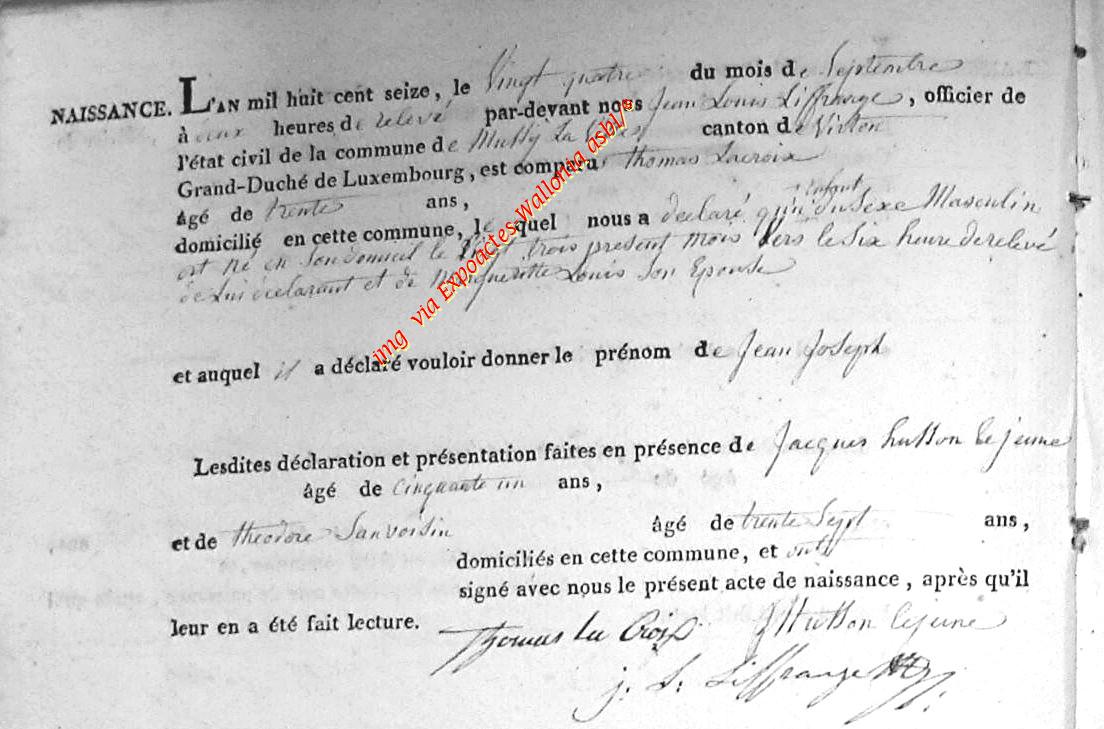 NAISSANCE. L'AN mil huit cent seize, le Vingt quatre du mois de Septembre
à deux heures de relevé par-devant nous Jean Louis Liffrange, officier de
l'état civil de la commune de Mussy La Ville canton de Virton
Grand-Duché de Luxembourg, est comparu Thomas Lacroix
âgé de trente ans,
domicilié en cette commune, lequel nous a declaré qu'un enfant du sexe Masculin
est né en son domicil le Vingt trois present mois Vers le Six heure de relevé
de Lui declarant et de Margueritte Louis Son Epouse
et auquel il a déclaré vouloir donner le prénom de Jean Joseph
Lesdites déclaration et présentation faites en présence de Jacques husson le jeune
âgé de Cinquante un ans,
et de theodore Sanvoisin âgé de trente Sept ans,
domiciliés en cette commune, et ont
signé avec nous le présent acte de naissance, après qu'il
leur en a été fait lecture.
Thomas la Croix J Husson le jeune
j. L. Liffrange
img via Expoactes Wallonia asbl/*